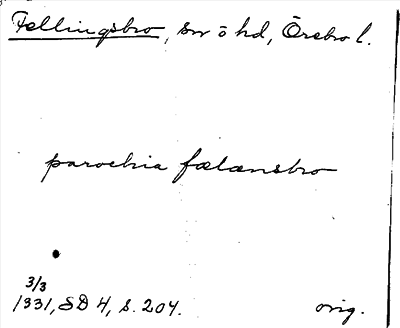 Fellingsbro, sn ö hd, Örebro l.
parochia fælænsbro
3/3
1331, SD 4, s. 204.
orig.